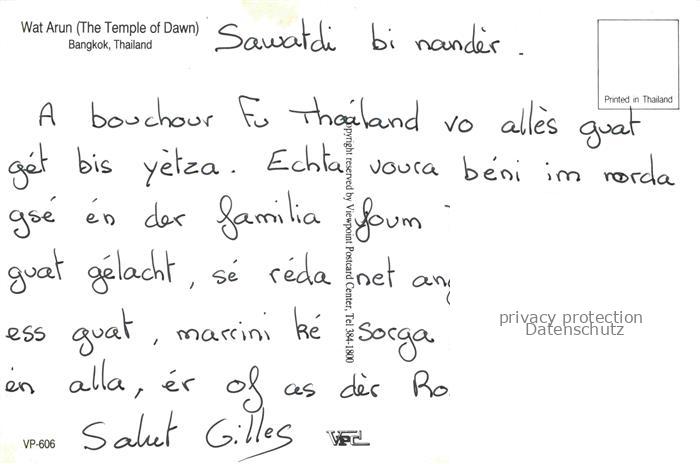 Wat Arun (The Temple of Dawn)
Bangkok, Thailand
Sawatdi bi nandèr.
Printed in Thailand
A bouchour Fu Thaïland vo allès guat
gét bis yètza. Echta voura béni im norda
gsé én der familia foum
guat gélacht, sé réda net
ess guat, marcini ké sorga
én alla, ér of as dèr Ro
Salut Gilles
Copyright reserved by Viewpoint Postcard Center, Tel 384-1800
privacy protection
Datenschutz
VP-606